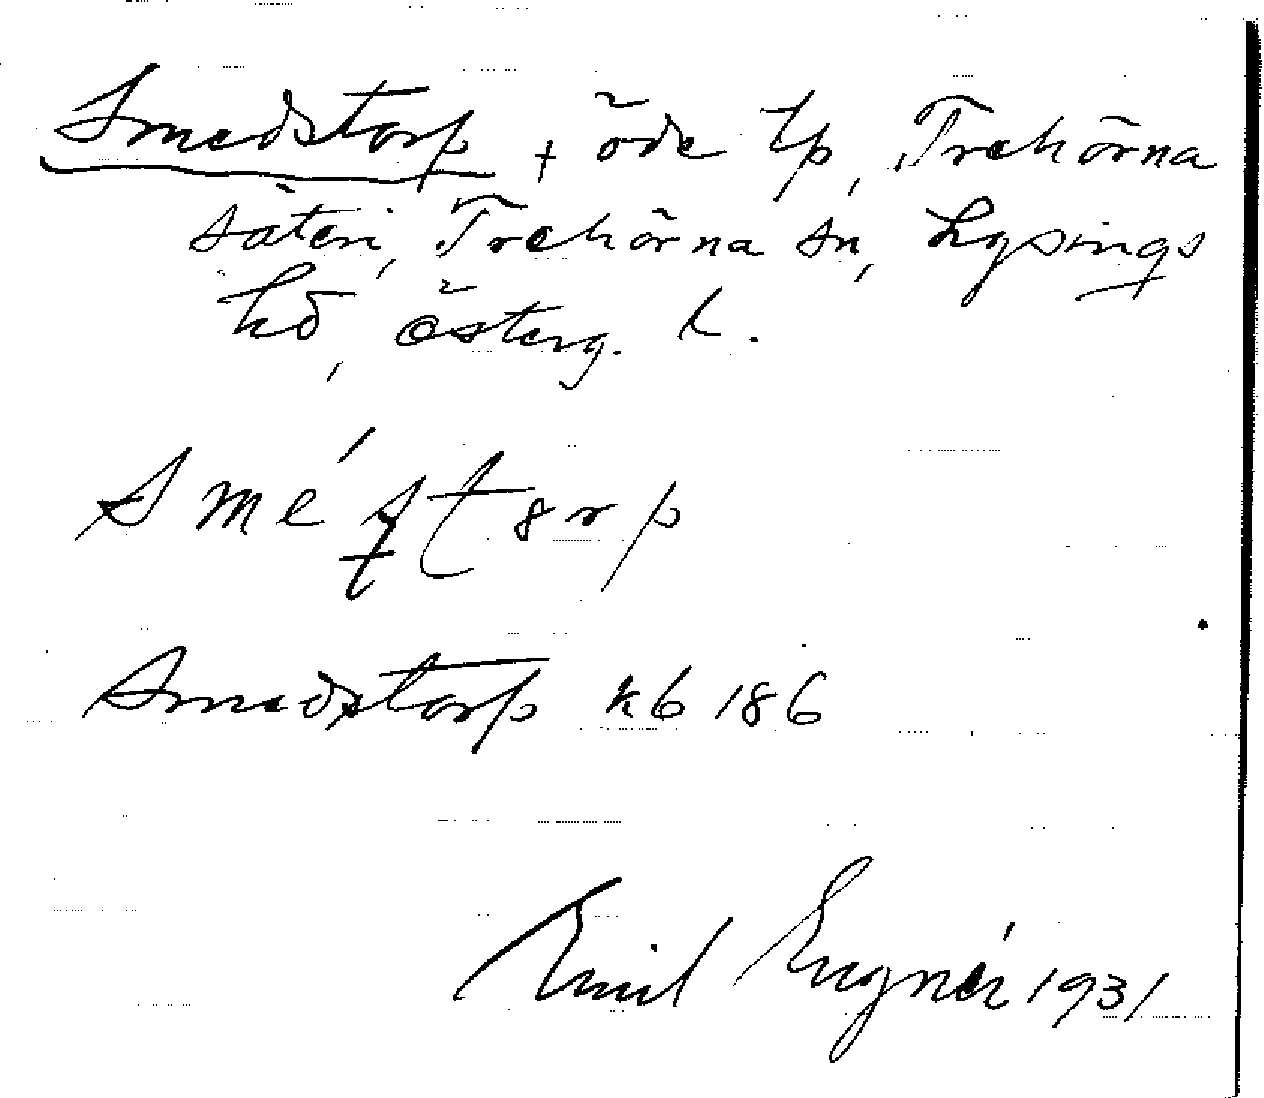 Smedstorp + öde tp, Trehörna
säteri, Trehörna sn, Lysings
hd, österg. l.
Smé ʃtɞrp
Smedstorp kb 186
Emil Engnér 1931